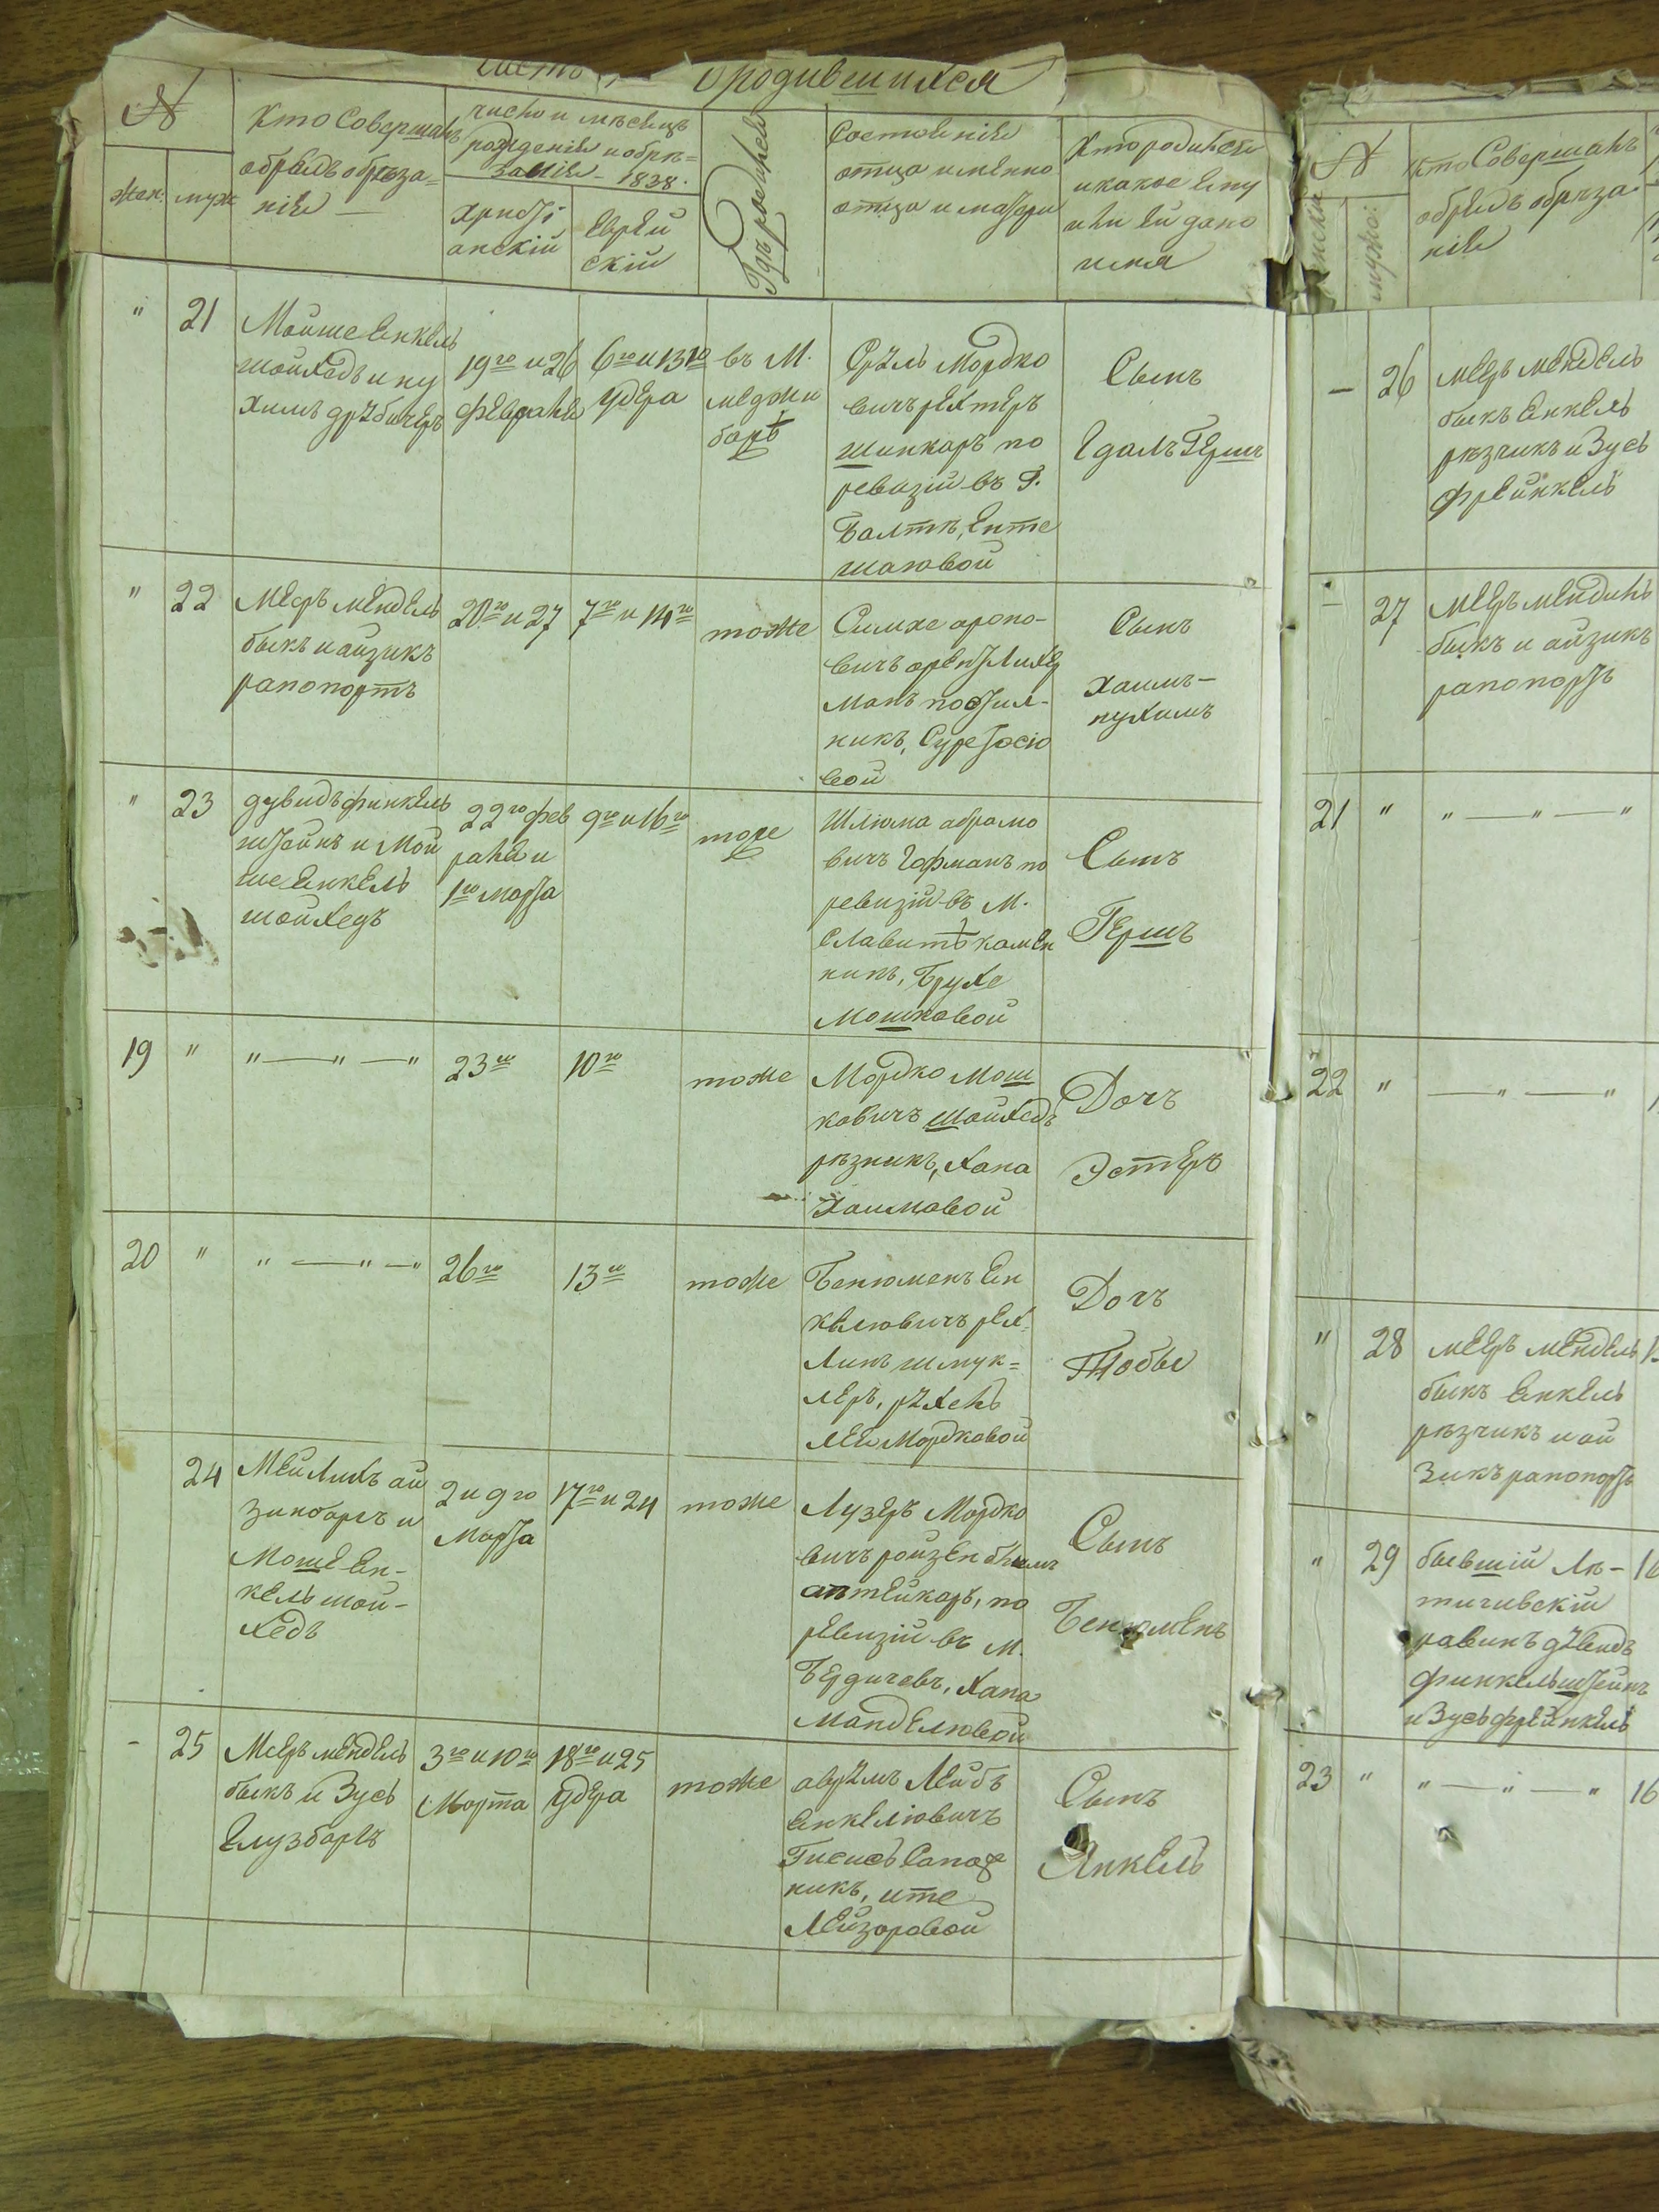 Часть о родившихся
№
Кто Совершалъ
обрядъ обреза=
нія —
число и мѣсяцъ
рожденія и обрѣ=
занія 1838.
Гдѣ родился
Состояніе
отца имянно
отца и матери
Кто родился
и какое ему
или ей дано
имя
жен.
муж
христі
анскій
еврей
скій
" 21
Мойше Енкель
шойхедъ и ну
химъ
19го и 26
февраля
6го и 13го
удера
въ М.
меджи
божѣ
Срулъ Мордко
вичъ рехтеръ
шинкаръ по
ревизіи въ Г.
Балтѣ, Енте
Сынъ
Гдалъ Гершъ
" 22
меръ мендель
быкъ и айзикъ
рапопортъ
20го и 27
7го и 14го
тоже
Симхе ароно-
вичъ
Суре Іосіо
вой
Сынъ
Хаимъ-
нухимъ
" 23
дувидъ финкель
штейнъ и Мой
ше Енкель
шойхедъ
22го фев
раля и
1го марта
9го и 16го
тоже
Шлюма абрамо
вичъ Гофманъ по
ревизіи въ М.
Славитѣ камен
никъ, Брухе
Мошковой
Сынъ
Гершъ
19 "
" — " — "
23го
10го
тоже
Мордко Мош
ковичъ Шойхедъ
рѣзникъ, Хана
Хаимовой
Дочъ
Эстеръ
20 "
" — " — "
26го
13го
тоже
Бенюменъ Ен
келювичъ рех=
линъ шмук=
леръ, рухель
леи Мордковой
Дочъ
Тобы
24
Мейлихъ ай
зинбаргъ и
Моше Ен-
кель шой-
хедъ
2 и 9го
Марта
17го и 24
тоже
Лузеръ Мордко
вичъ
аптейкаръ, по
ревизіи въ М.
Бердичевъ, Хана
Манделювой
Сынъ
Бенюменъ
- 25
Меръ мендель
быкъ и Зусь
Елузбаргъ
3го и 10го
Марта
18го и 25
удера
тоже
аврумъ Лейбъ
Енкелювичъ
Сапож
никъ, ите
Лейзоровой
Сынъ
Янкель
№
женска
мужс:
кто Совершалъ
обрядъ обреза
нія
— 26
меръ мендель
быкъ Енкель
рѣзчикъ и Зусь
френкель
— 27
меръ мендиль
быкъ и айзикъ
рапопортъ
21 "
" — " — "
22 "
— " — "
" 28
мееръ мендель
быкъ Енкель
рѣзчикъ и ай
зикъ рапопортъ
" 29
бывшій Ле-
тичивскій
равинъ дувидъ
финкельштейнъ
и Зусь френкель
16
23 "
" — " — "
16